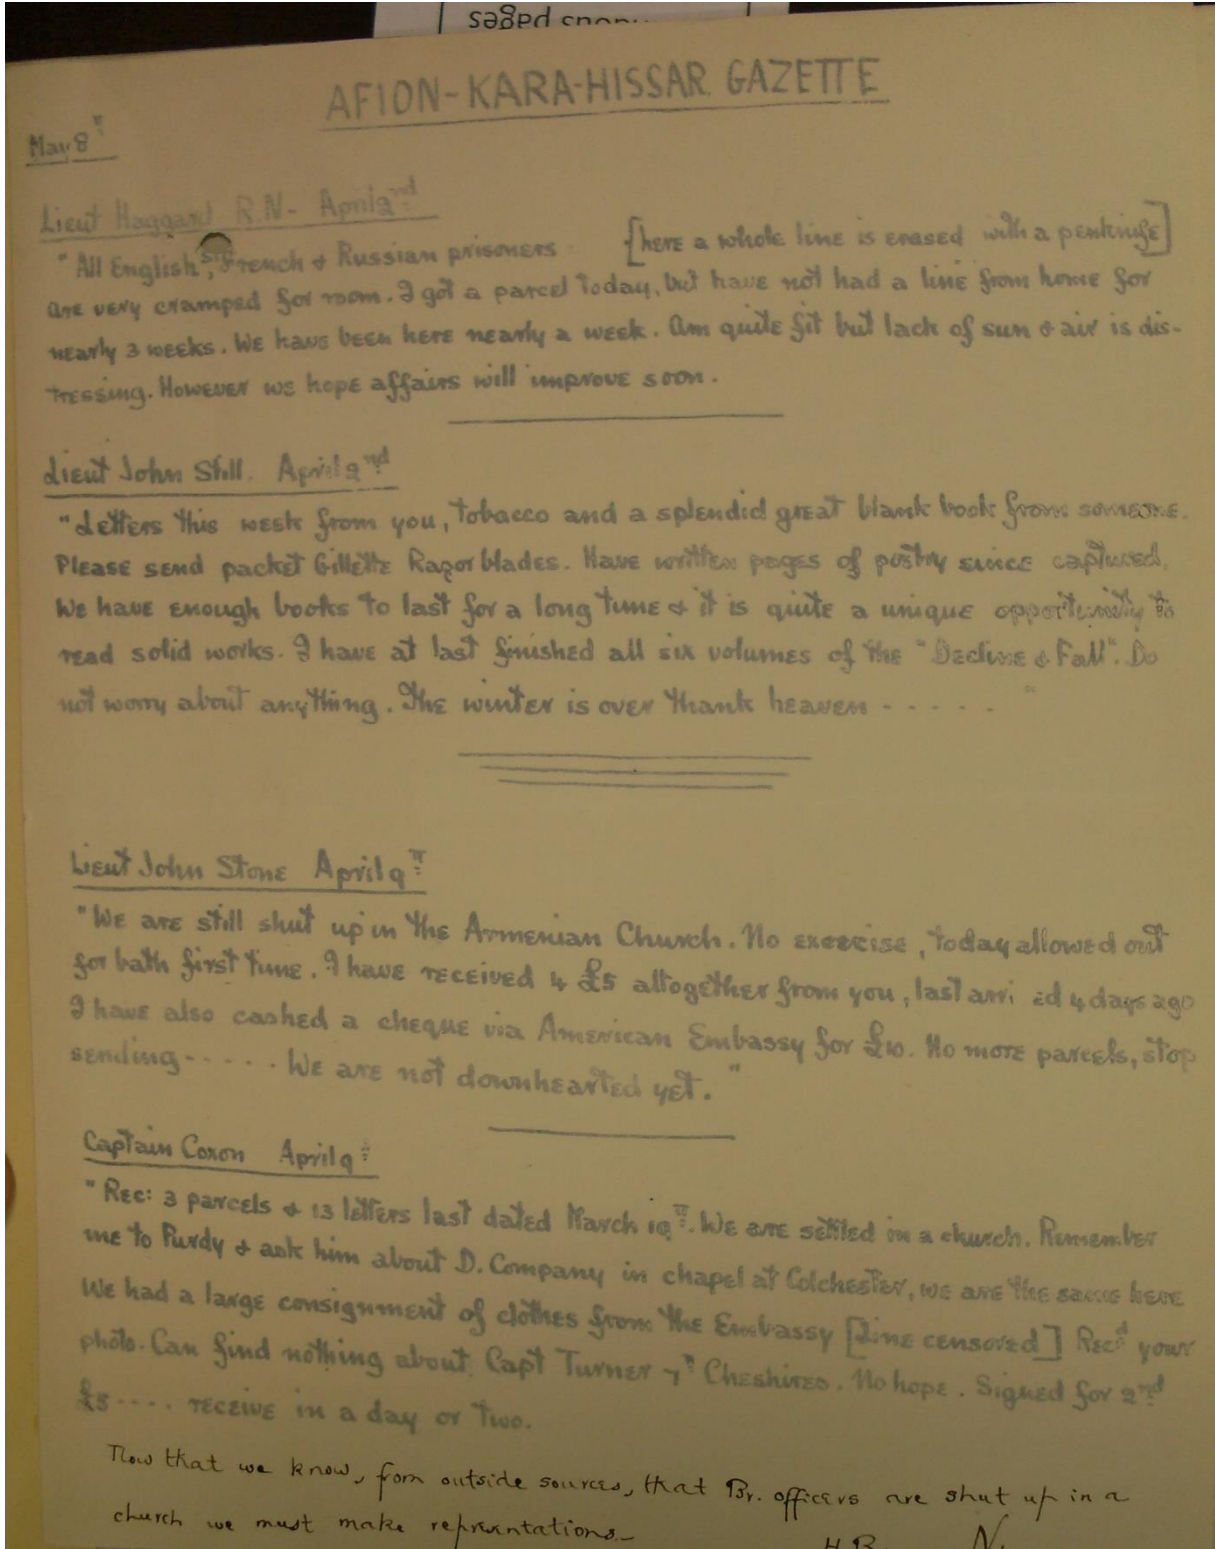 AFION-KARA-HISSAR GAZETTE
May 8th
Lieut Haggard R.N- April 2nd
"All English, French & Russian prisoners [here a whole line is erased with a penknife]
are very cramped for room. I got a parcel today, but have not had a line from home for
nearly 3 weeks. We have been here nearly a week. Am quite fit but lack of sun & air is dis-
tressing. However we hope affairs will improve soon.
Lieut John Still. April 2nd
"Letters this week from you, tobacco and a splendid great blank book from someone.
Please send packet Gillette Razor blades. Have written pages of poetry since captured.
We have enough books to last for a long time & it is quite a unique opportunity to
read solid works. I have at last finished all six volumes of the "Decline & Fall". Do
not worry about anything. The winter is over thank heaven - - - - - "
Lieut John Stone April 9th
"We are still shut up in the Armenian Church. No exercise, today allowed out
for bath first time. I have received 4 £5 altogether from you, last arri ed 4 days ago
I have also cashed a cheque via American Embassy for £10. No more parcels, stop
sending - - - - - We are not downhearted yet."
Captain Coxon April 9th
"Rec: 3 parcels & 13 letters last dated March 10th. We are settled in a church. Remember
me to Purdy & ask him about D. Company in chapel at Colchester, we are the same here
We had a large consignment of clothes from the Embassy [Line censored] Recd your
photo. Can find nothing about Capt Turner 7th Cheshires. No hope. Signed for 2nd
£5 - - - - receive in a day or two.
Now that we know, from outside sources, that Br. officers are shut up in a
church we must make reprsntations_
H.B. N.